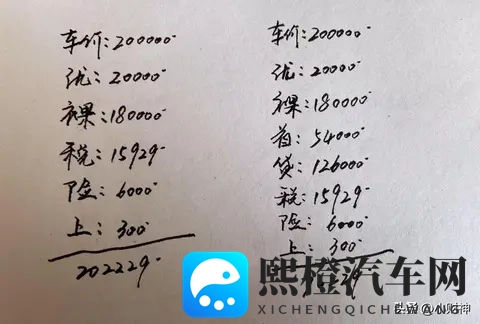 车价:200000
优:20000
裸:180000
税:15929
险:6000
上:300
202229
车价:200000
优:20000
裸:180000
首:54000
贷:126000
税:15929
险:6000
上:300
熙橙汽车网
XICHENGQICHEWANG
头条 @小财神